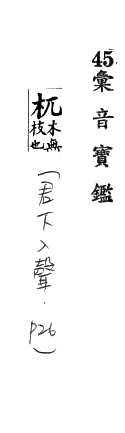 45彙音寶鑑
杌木無枝也
(君下入聲.p26)